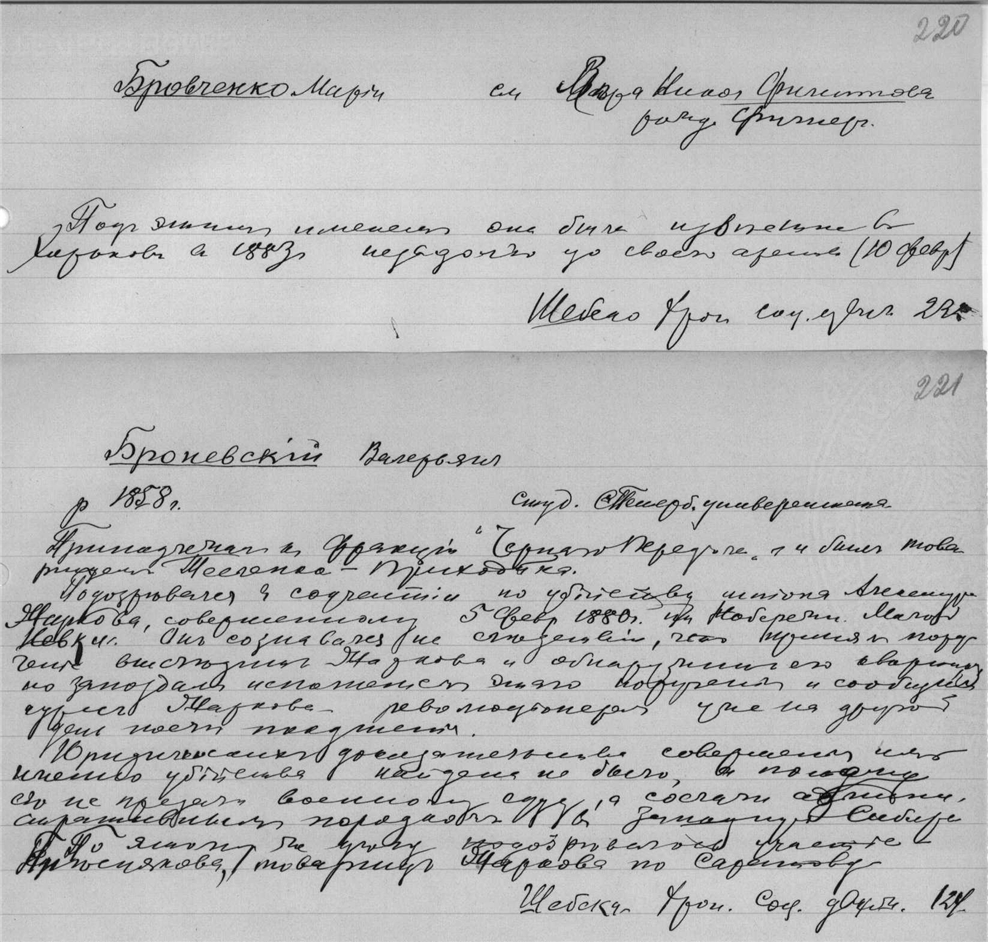 220
Бровченко Марiя см Вера Никол Филиппова
рожд. Фигнер.
Подъ этимъ именемъ она была извѣстна въ
Харьковѣ въ 1883г незадолго до своего ареста (10 февр)
Шебеко Хрон соц. движ 22
221
Броневскiй Валерьянъ
р 1858г. студ. СПетерб. университета
Принадлежал къ фракцiи "Чернаго Передѣла" и былъ това
рищемъ - Приходька.
Подозрѣвался въ соучастiи по убiйству шпiона Александра
Жаркова, совершенному 5 февр 1880г. на Набережн. Малой
Невки. Онъ сознавался на слѣдствiи, что принялъ пору
ченiе выслѣдить Жаркова и обнаружить его квартиру
но запоздалъ исполненiемъ этого порученiя и сообщилъ
адресъ Жаркова революцiонерамъ уже на другой
день послѣ покушенiя.
Юридическихъ доказательствъ совершенiя имъ
убiйства найдено не было, а потому
его не предали военному суду, а сослали админи
стративнымъ порядкомъ въ Западную Сибирь
По этому же дѣлу подозрѣвалось участiе
товарища Жаркова по Саратову
Шебеко Хрон. Соц. движ. 124